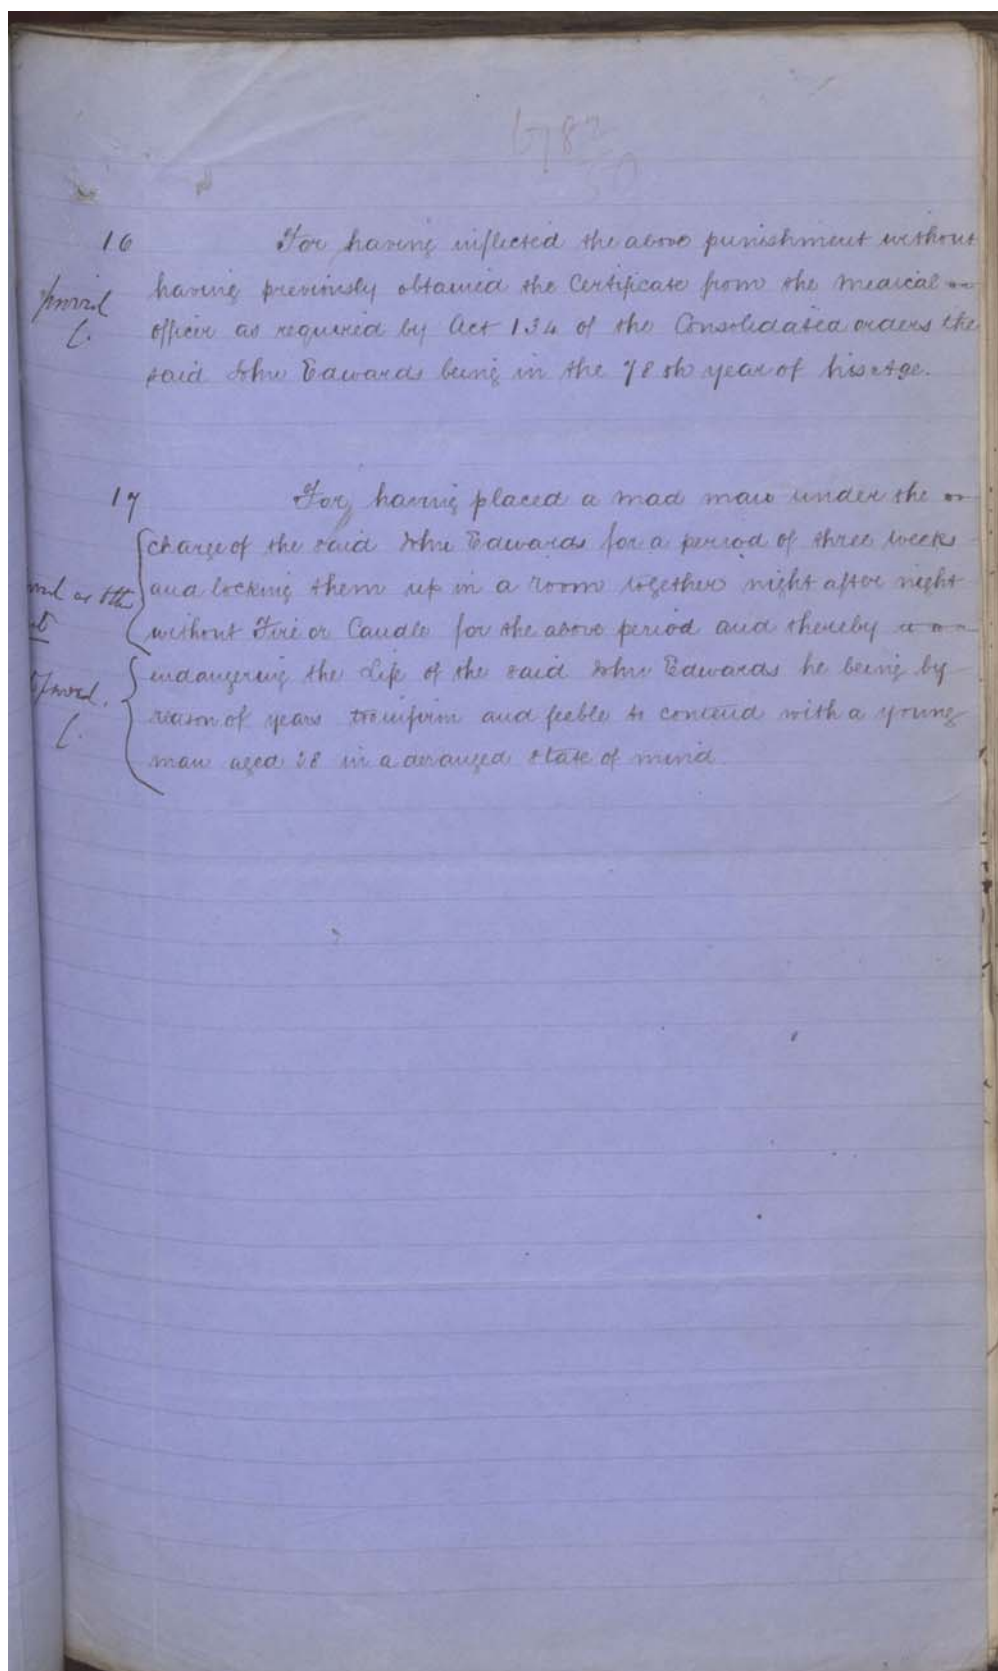 6782
50
16 For having inflected the above punishment without
having previously obtained the Certificate from the medical
officer as required by Act 134 of the Consolidated orders the
said John Edwards being in the 78th year of his Age.
17 For having placed a mad man under the
charge of the said John Edwards for a period of three weeks
and locking them up in a room together night after night
without Fire or Candle for the above period and thereby
endangering the Life of the said John Edwards he being by
reason of years too infirm and feeble to contend with a young
man aged 28 in a deranged state of mind